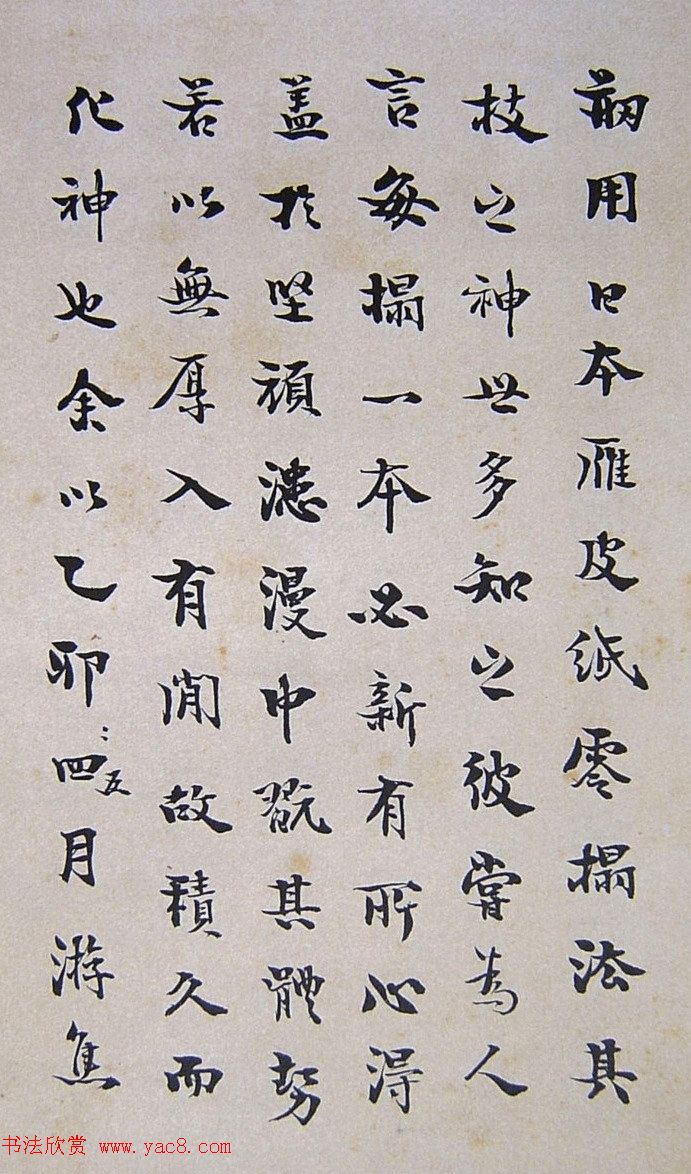 剏用日本雁皮紙零搨法其
技之神世多知之彼嘗為人
言每搨一本必新有所心得
盖於堅頑漶漫中翫其體勢
若以無厚入有閒故積久而
化神也余以乙卯四五月游焦
书法欣赏 www.yac8.com